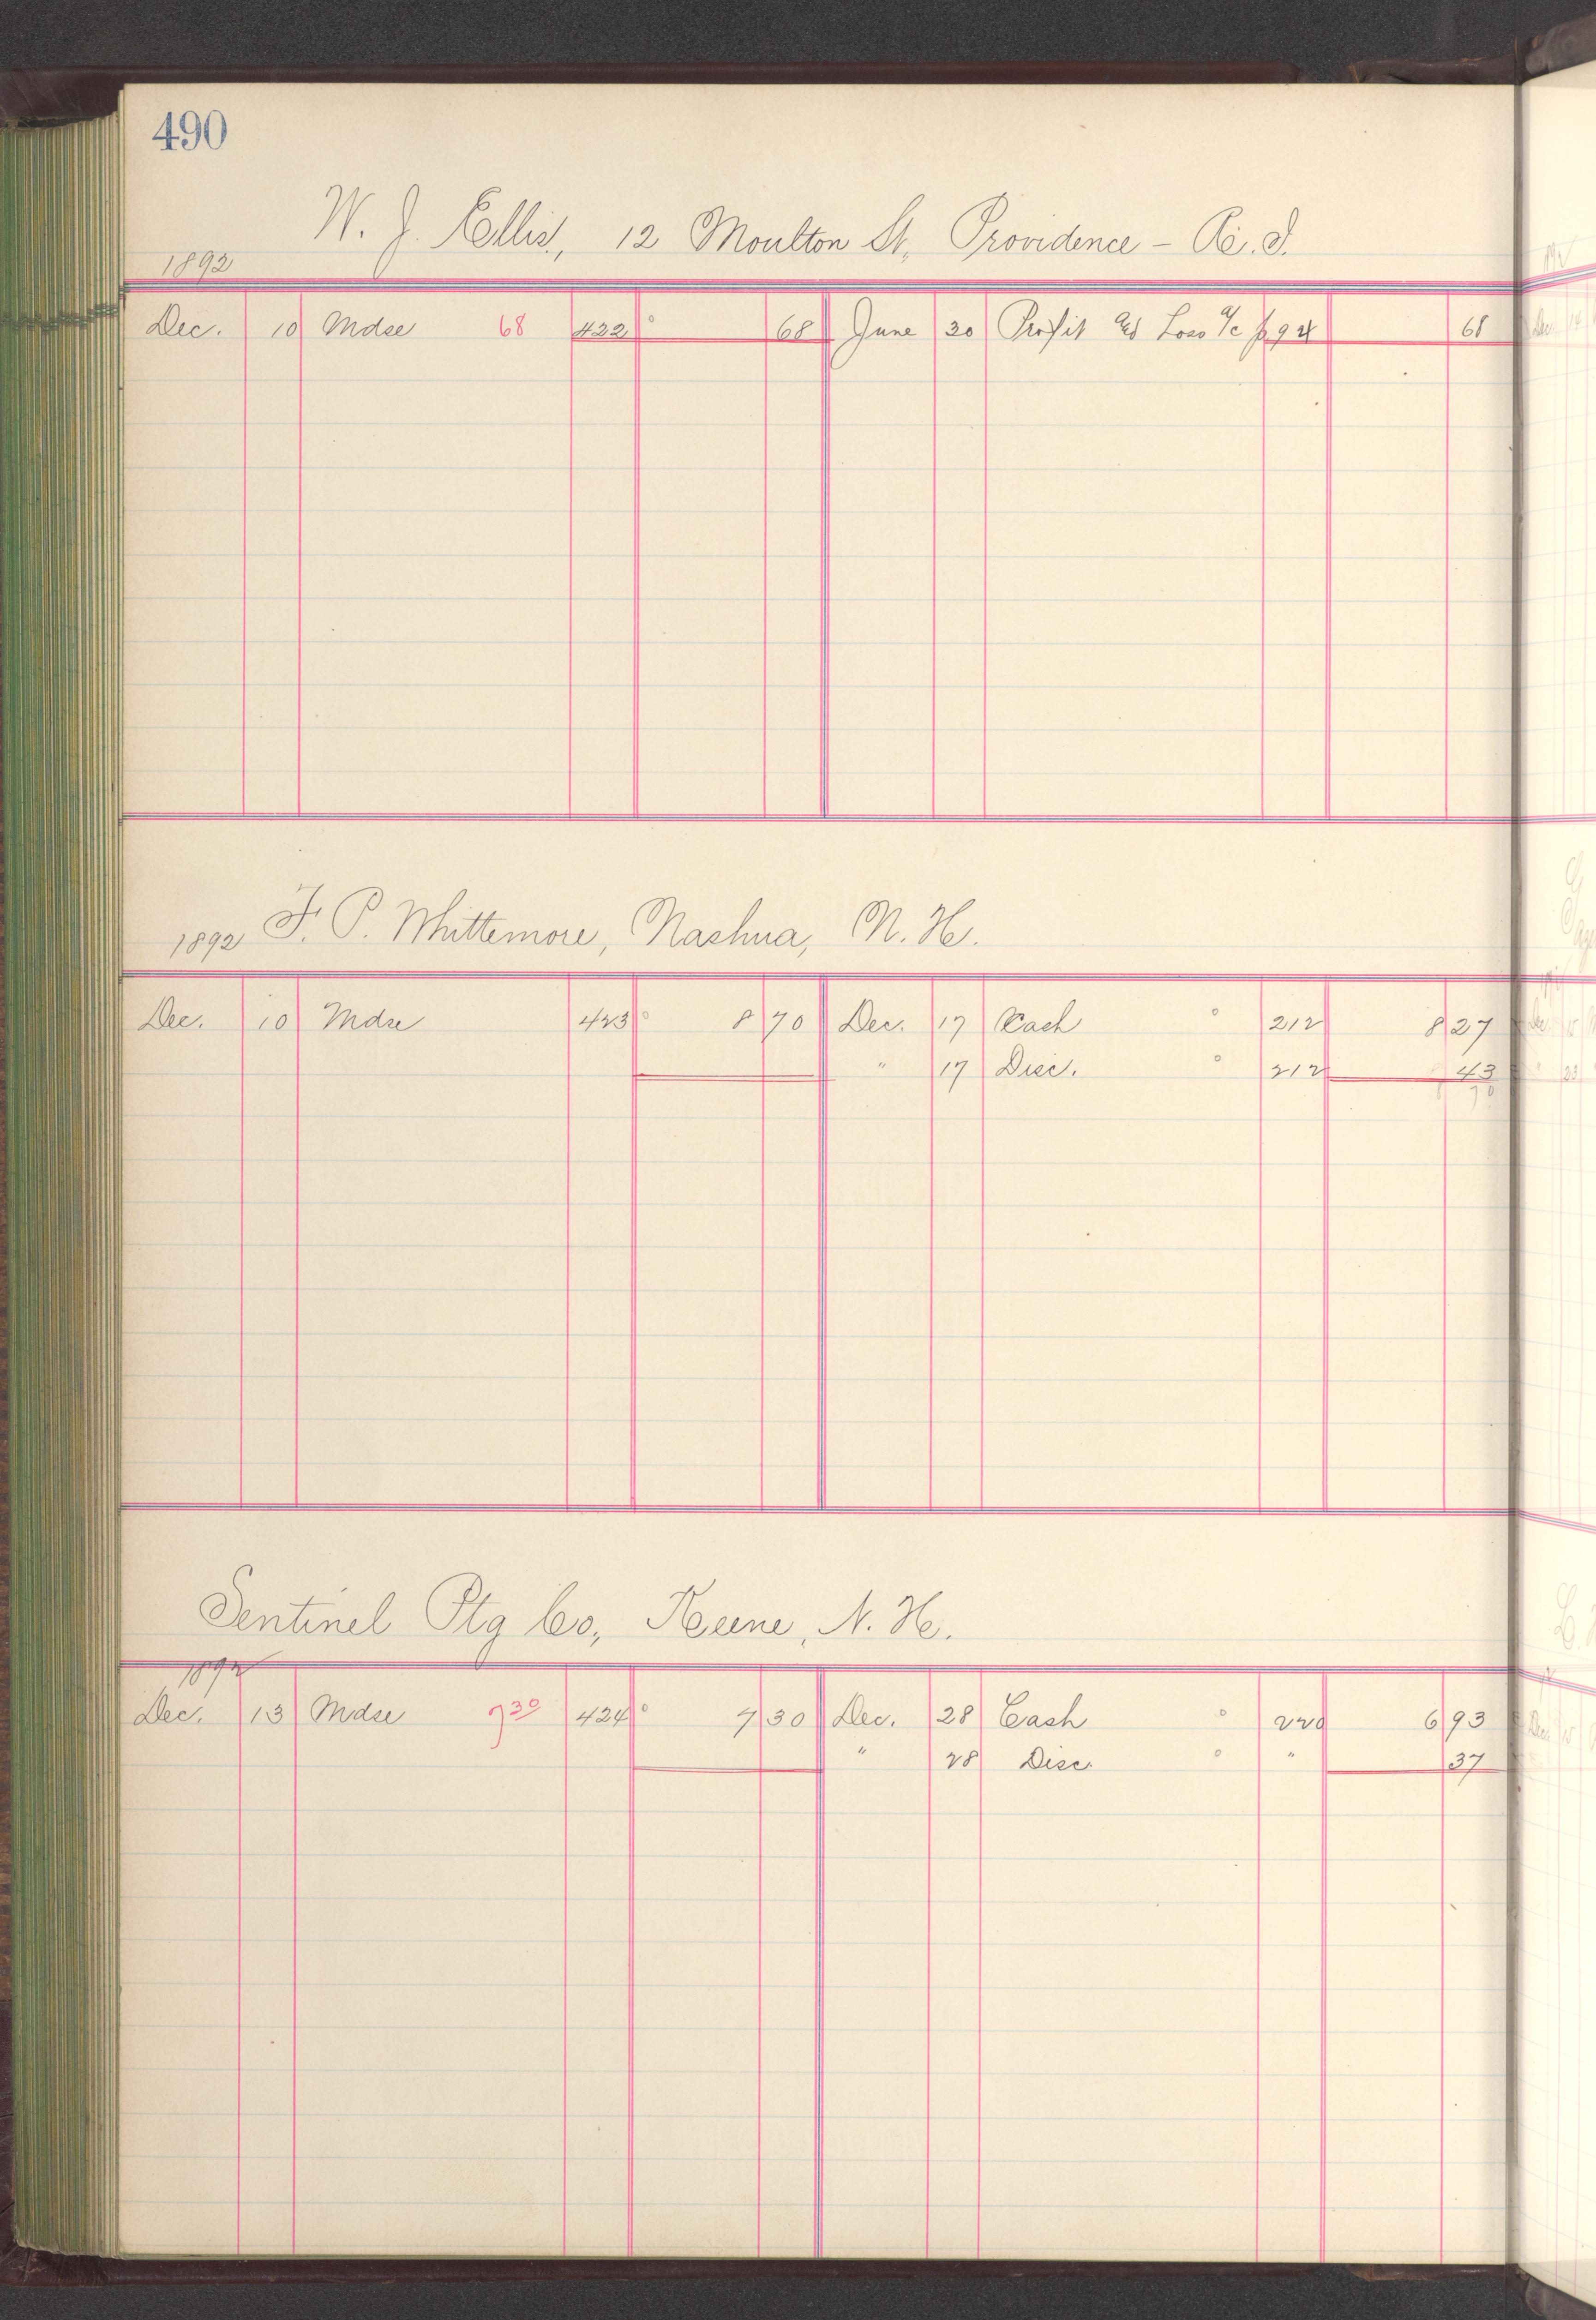 490
W. J. Ellis, 12 Moulton St, Providence - R. I.
1892
Dec. 10 Mdse 68 422 68 June 30 Profit & Loss a/c p 94 68
1892 F. P. Whittemore, Nashua, N. H.
Dec. 10 Mdse 423 8 70 Dec. 17 Cash 212 8 27
" 17 Disc. 212 43
8 70
Sentinel Ptg Co, Keene, N. H.
1892
Dec. 13 Mdse 7 30 424 7 30 Dec. 28 Cash 220 6 93
" 28 Disc " 37